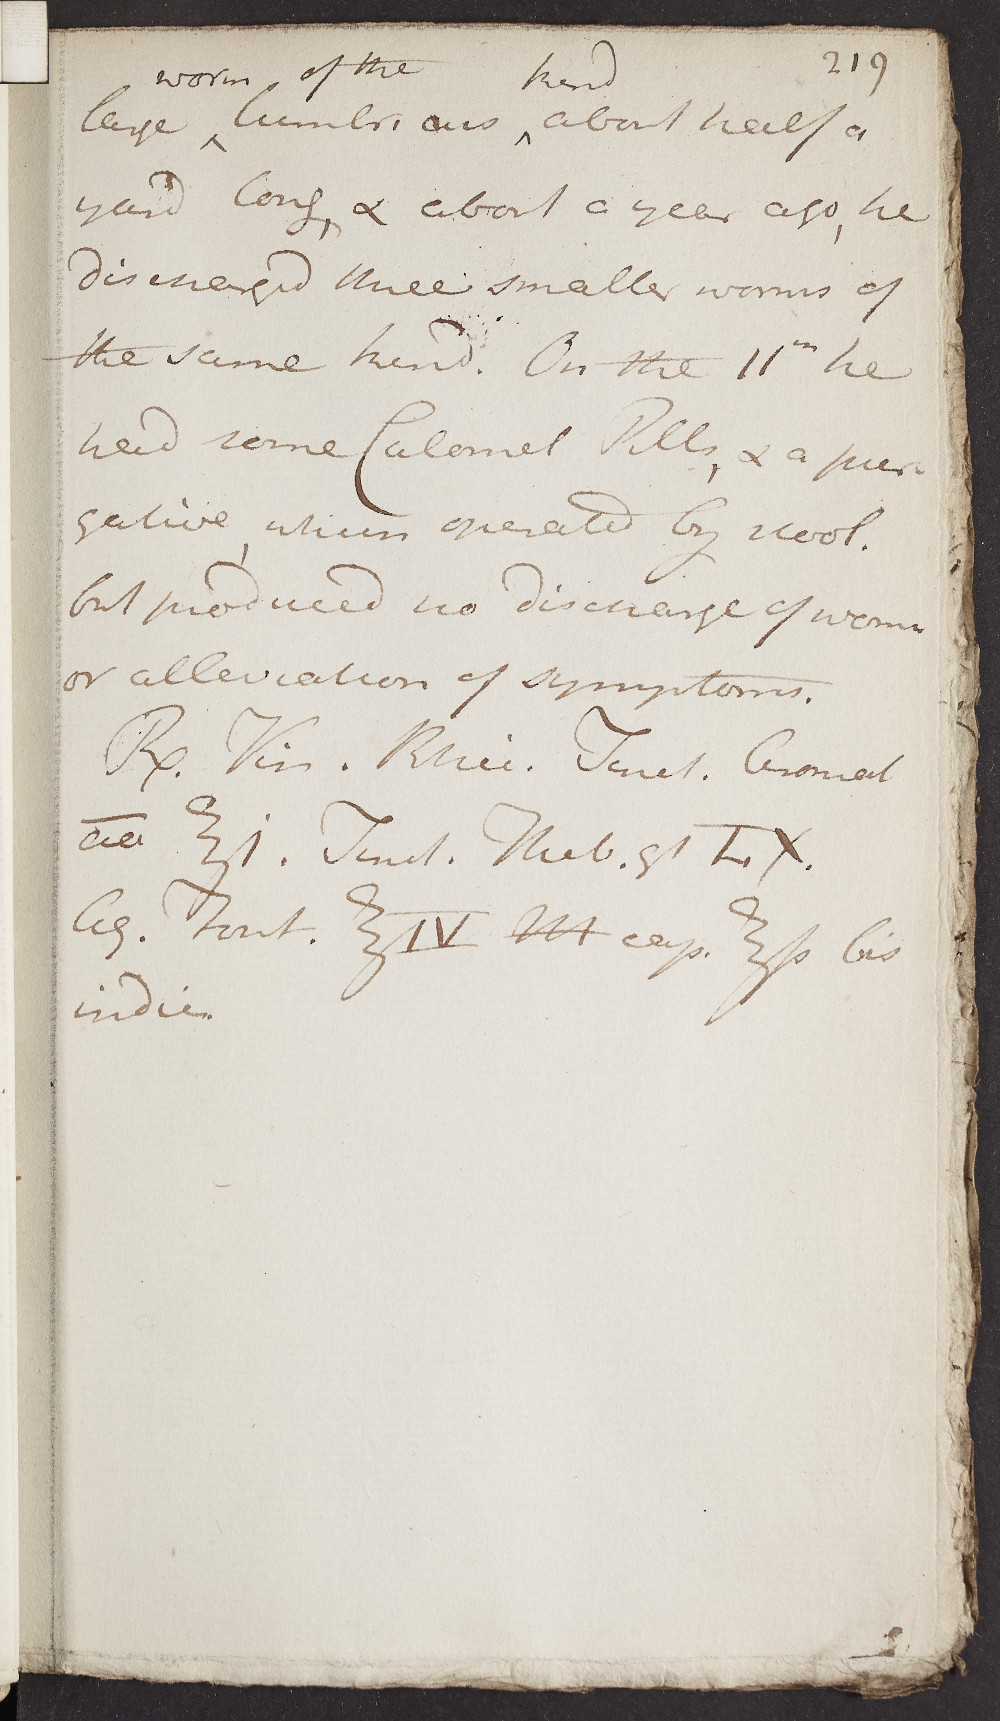 219
worm of the kind
large ‸ lumbricus ‸ about half a
yard long, & about a year ago, he
discharged three smaller worms of
the same kind. On the 11th he
had some Calomel Pills, & a pur
gative, which operated by stool.
but produced no discharge of worms
or alleviation of symptoms.
℞. Vin. Rhei. Tinct. Aromat
aa ℥j. Tinct. Theb. gt LX.
Aq. Font. ℥IV M cap. ℥ß bis
indie.